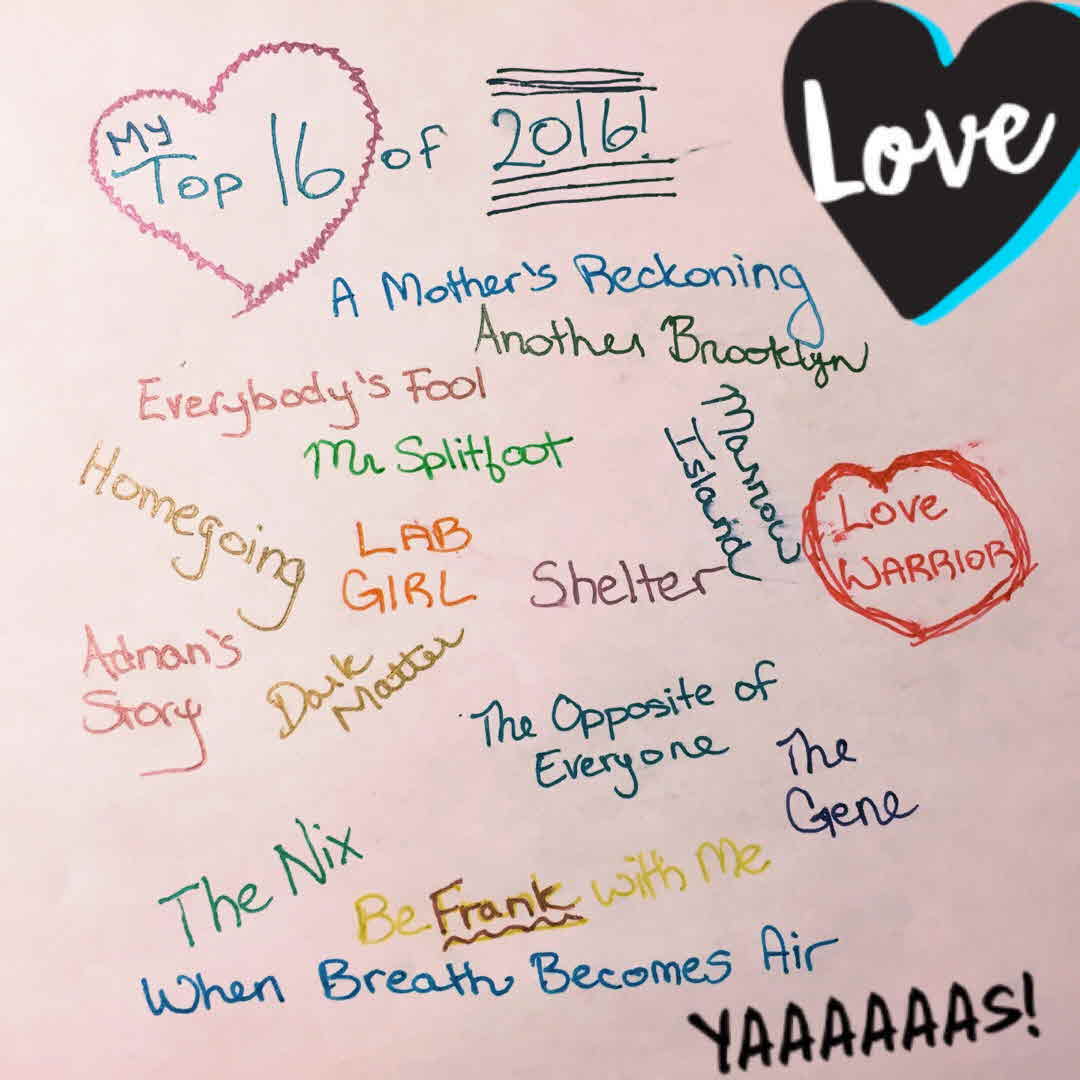 My
Top 16 of 2016!
Love
A Mother's Reckoning
Another Brooklyn
Everybody's Fool
Mr Splitfoot
Marrow
Island
Homegoing
LAB
GIRL
Shelter
Love
WARRIOR
Adnan's
Story
Dark
Matter
The Opposite of
Everyone
The
Gene
The Nix
Be Frank with Me
When Breath Becomes Air
YAAAAAAS!